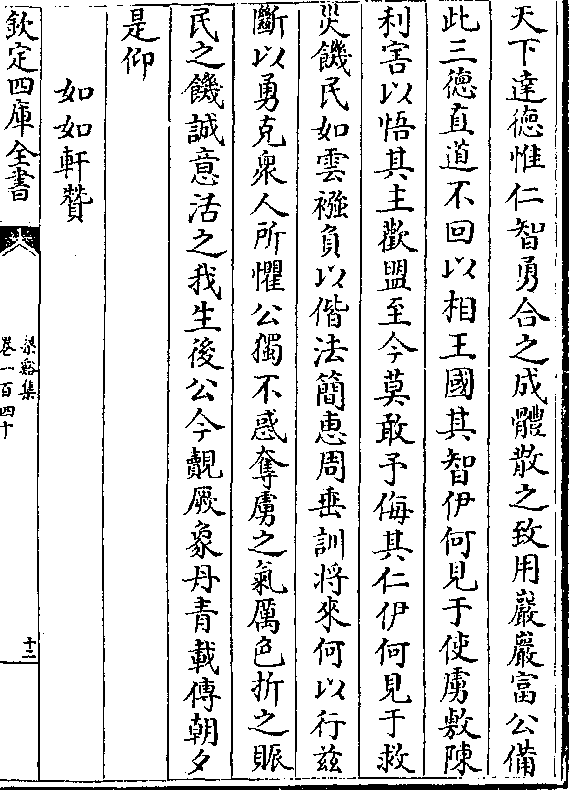 天下達徳惟仁智勇合之成體散之致用巖巖富公備
此三德直道不回以相王國其智伊何見于使虜敷陳
利害以悟其主歡盟至今莫敢予侮其仁伊何見于救
災饑民如雲襁負以偕法簡惠周垂訓將來何以行兹
斷以勇克衆人所懼公獨不惑奪虜之氣厲色折之賑
民之饑誠意活之我生後公今覩厥象丹青載傳朝夕
是仰
如如軒贊
欽定四庫全書
梁谿集
卷一百四十
十三